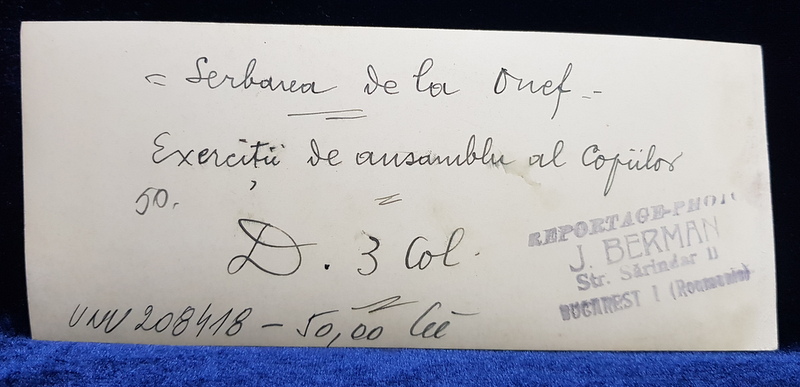 = Serbarea de la Onef. -
Exerciții de ansamblu al Copiilor
50.
D. 3 Col.
UNU 208418 - 50,00 lei
REPORTAGE-PHOT
J. BERMAN
Str. Sărindar 11
BUCAREST I (Roumanie)